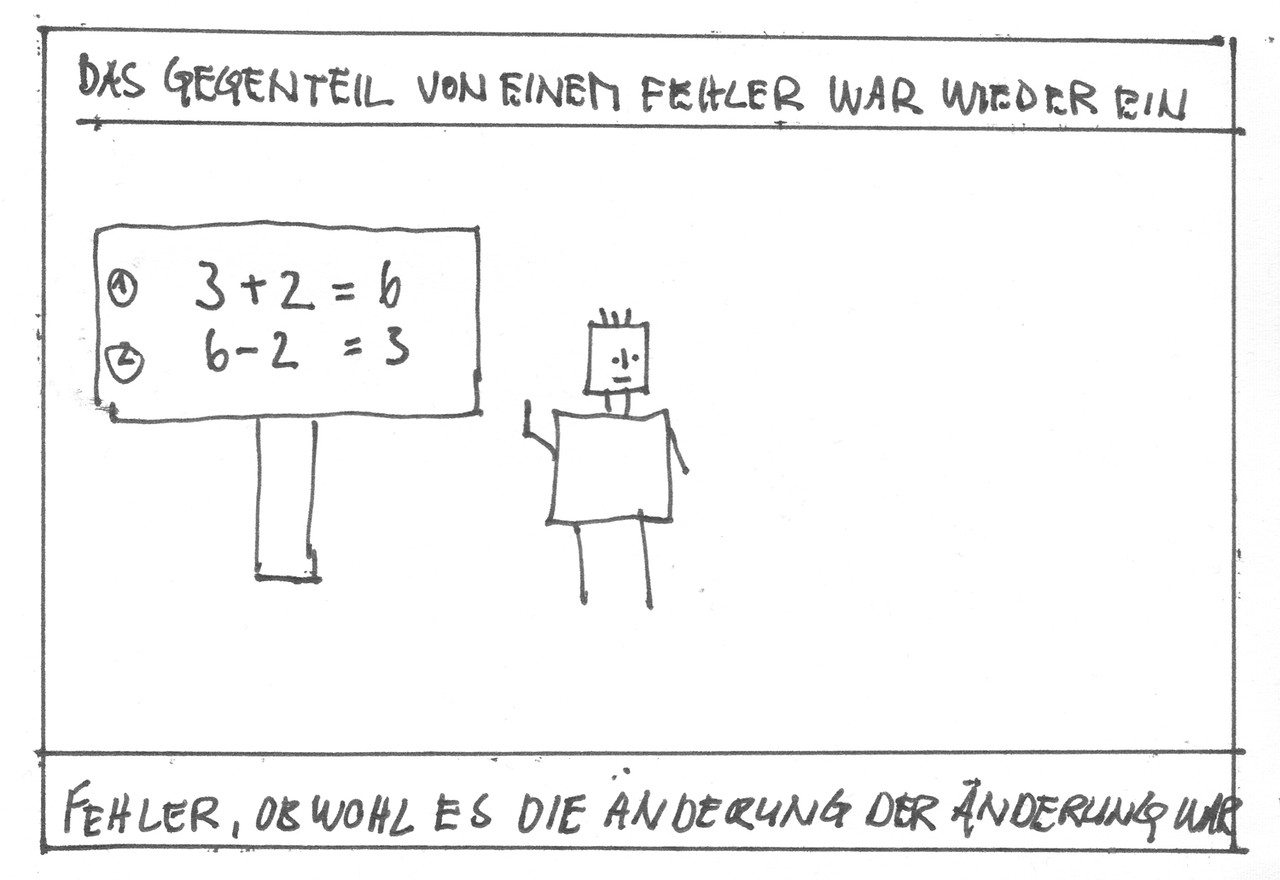 DAS GEGENTEIL VON EINEM FEHLER WAR WIEDER EIN
① 3 + 2 = 6
② 6 - 2 = 3
FEHLER, OBWOHL ES DIE ÄNDERUNG DER ÄNDERUNG WAR